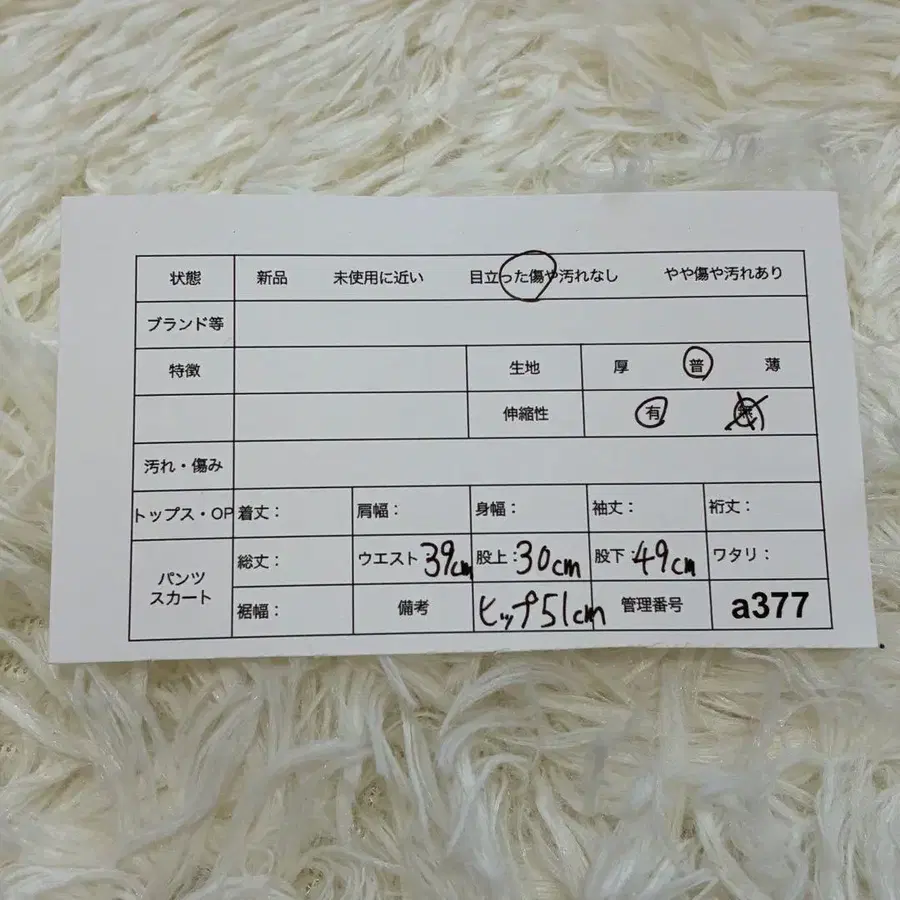 状態 新品 未使用に近い 目立った傷や汚れなし やや傷や汚れあり
ブランド等
特徴 生地 厚 普 薄
伸縮性 有 無
汚れ・傷み
トップス・OP 着丈： 肩幅： 身幅： 袖丈： 裄丈：
パンツ スカート
総丈： ウエスト 39cm 股上：30cm 股下：49cm ワタリ：
裾幅： 備考 ヒップ51cm 管理番号 a377